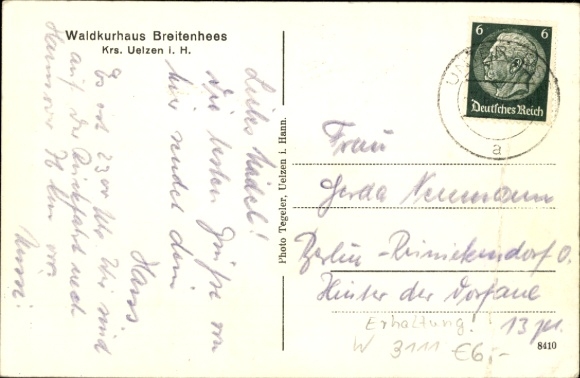 Waldkurhaus Breitenhees
Krs. Uelzen i. H.
Liebes Mädel!
die besten Grüße von
hier sendet dein
Hans.
Es ist 23 Uhr. Wir sind
auf der Rückfahrt nach
Hannover 76 km von
Photo Tegeler, Uelzen i. Hann.
6 6
Deutsches Reich
a
Frau
Gerda Neumann
Berlin-Reinickendorf O.
Hinter der Dorfaue
13 ptr.
Erhaltung!
W 3111 €6,-
8410